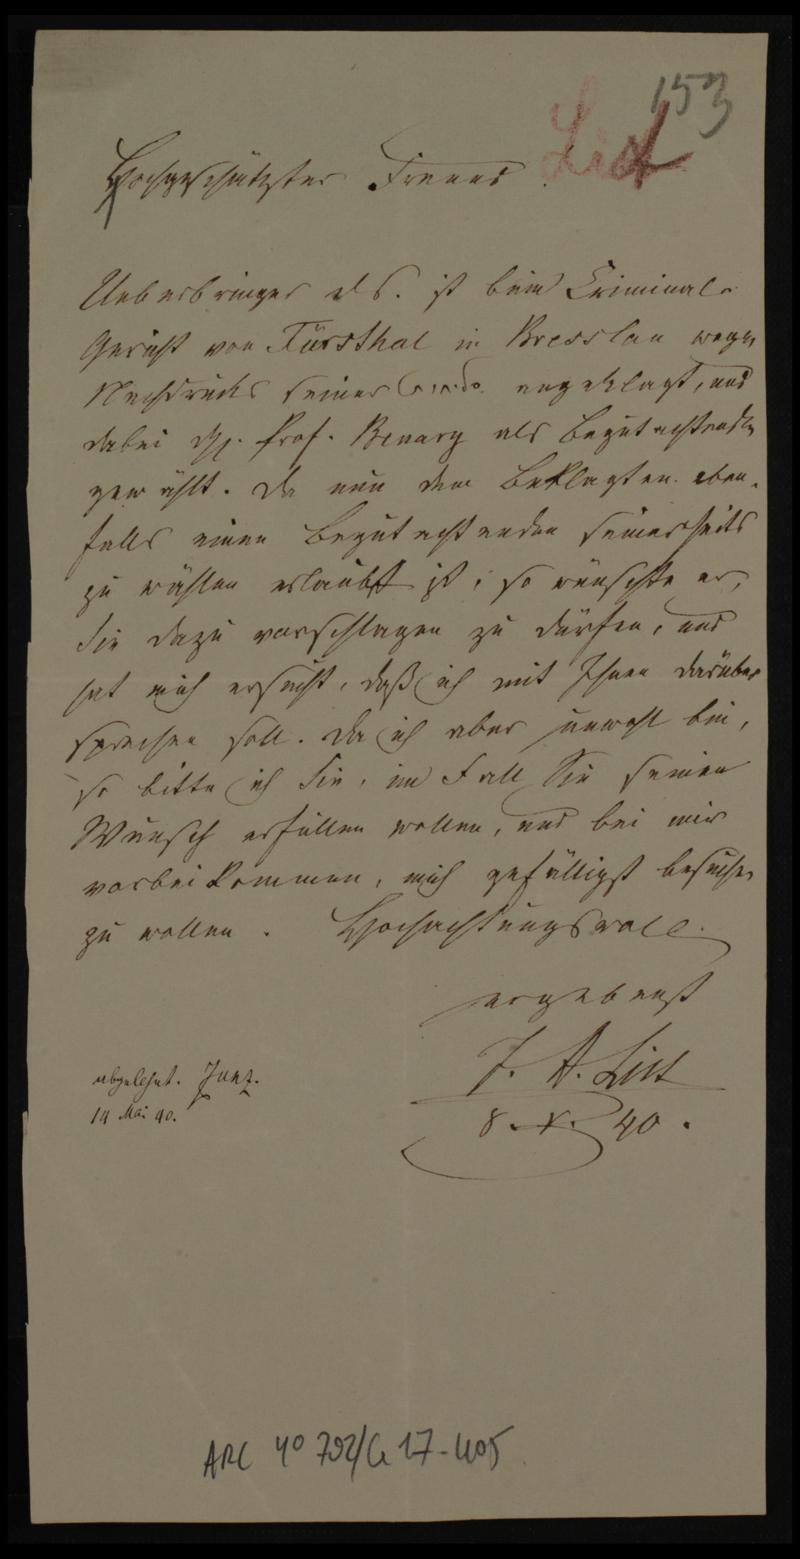 153
List
Hochgeschätzter Freund
Ueberbringer ds. ist beim Criminal-
Gericht von Fürsthal in Bresslau wegen
Nachdrucks seiner angeklagt, und
dabei H. Prof. Benary als Begutachtenden
gewählt. Da nun dem Beklagten eben-
falls einen Begutachtenden seinerseits
zu wählen erlaubt ist, so wünschte er,
Sie dazu vorschlagen zu dürfen, und
hat mich ersucht, daß ich mit Ihnen darüber
sprechen soll. Da ich aber unwohl bin,
so bitte ich Sie, im Fall Sie seinen
Wunsch erfüllen wollen, und bei mir
vorbei kommen, mich gefälligst besuchen
zu wollen. Hochachtungsvoll
ergebenst
J. A. List
8. 40.
abgelehnt. Zunz.
14 Mai 40.
ARC 4° 792/G 17-405